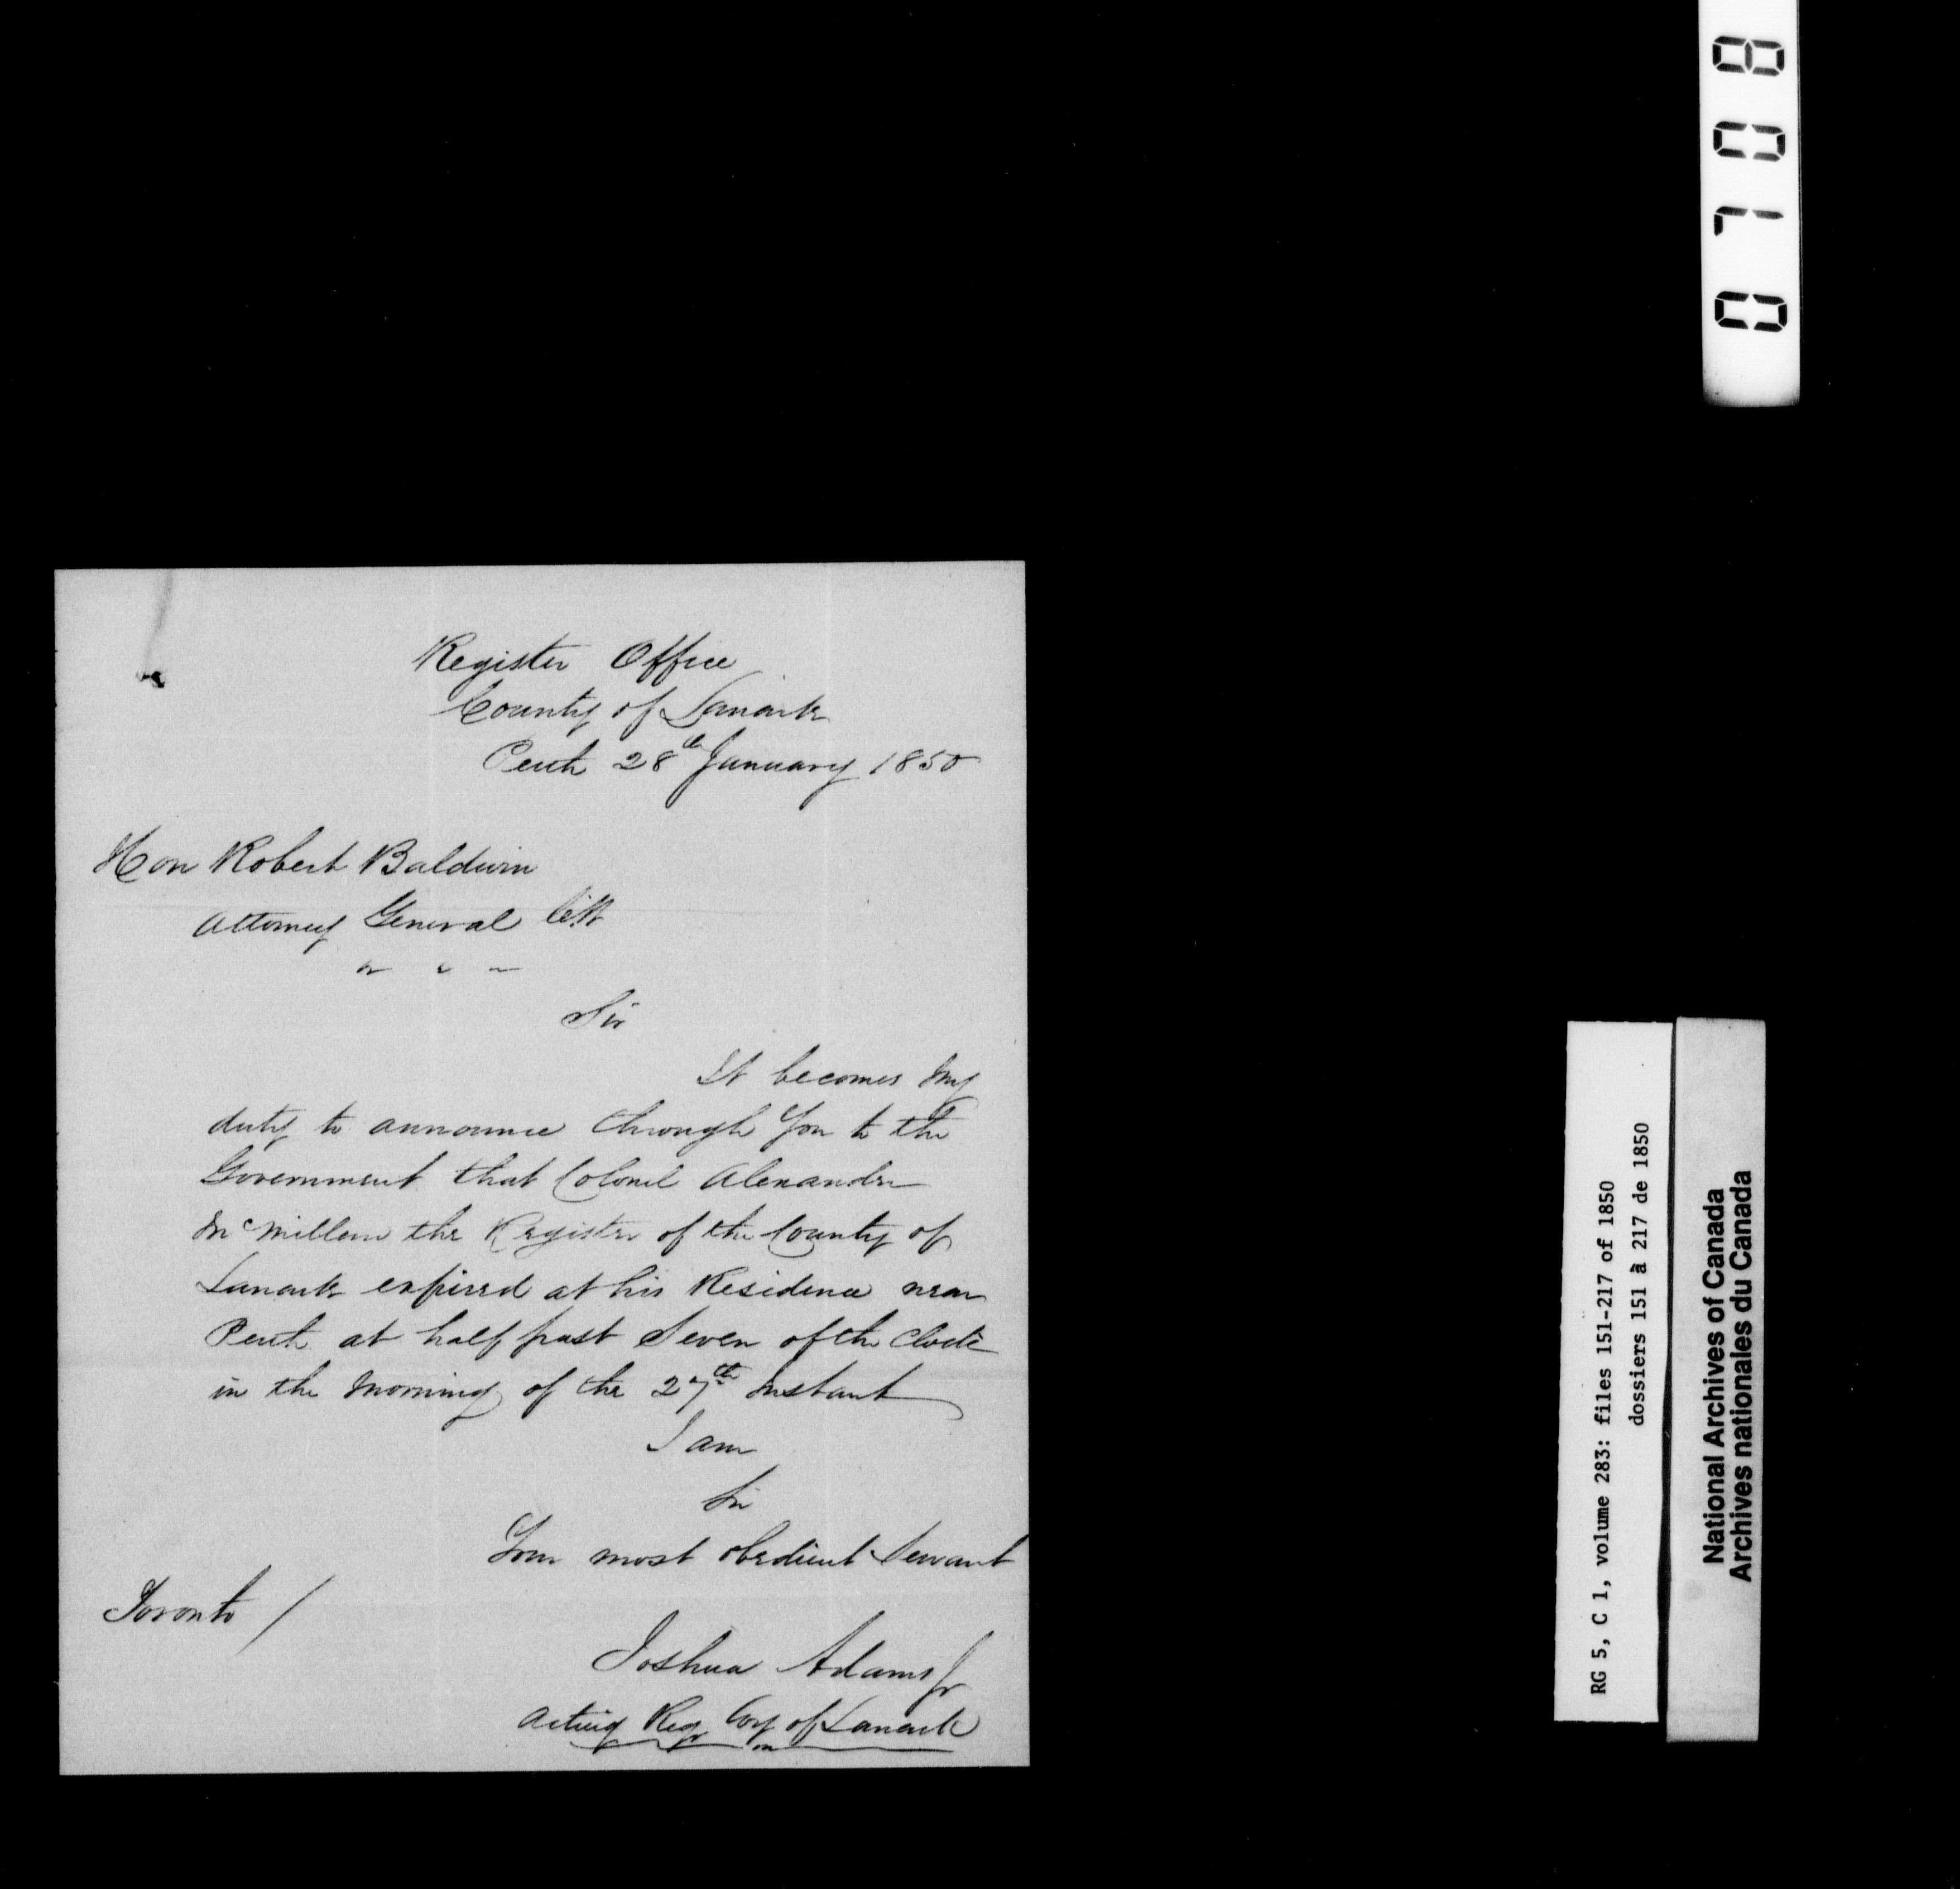 Register Office
County of Lanark
Perth 28th January 1850
Hon Robert Baldwin
Attorney General
Sir
It becomes my
duty to announce through You to the
Government that Colonel Alexander
McMillan the Register of the County of
Lanark expired at his Residence near
Perth at half past Seven of the Clock
in the Morning of the 27th Instant
I am
Sir
Your most obedient Servant
Toronto /
Joshua Adams Jr
Acting Regr Coy of Lanark
0708
RG 5, C 1, volume 283: files 151-217 of 1850
dossiers 151 à 217 de 1850
National Archives of Canada
Archives nationales du Canada